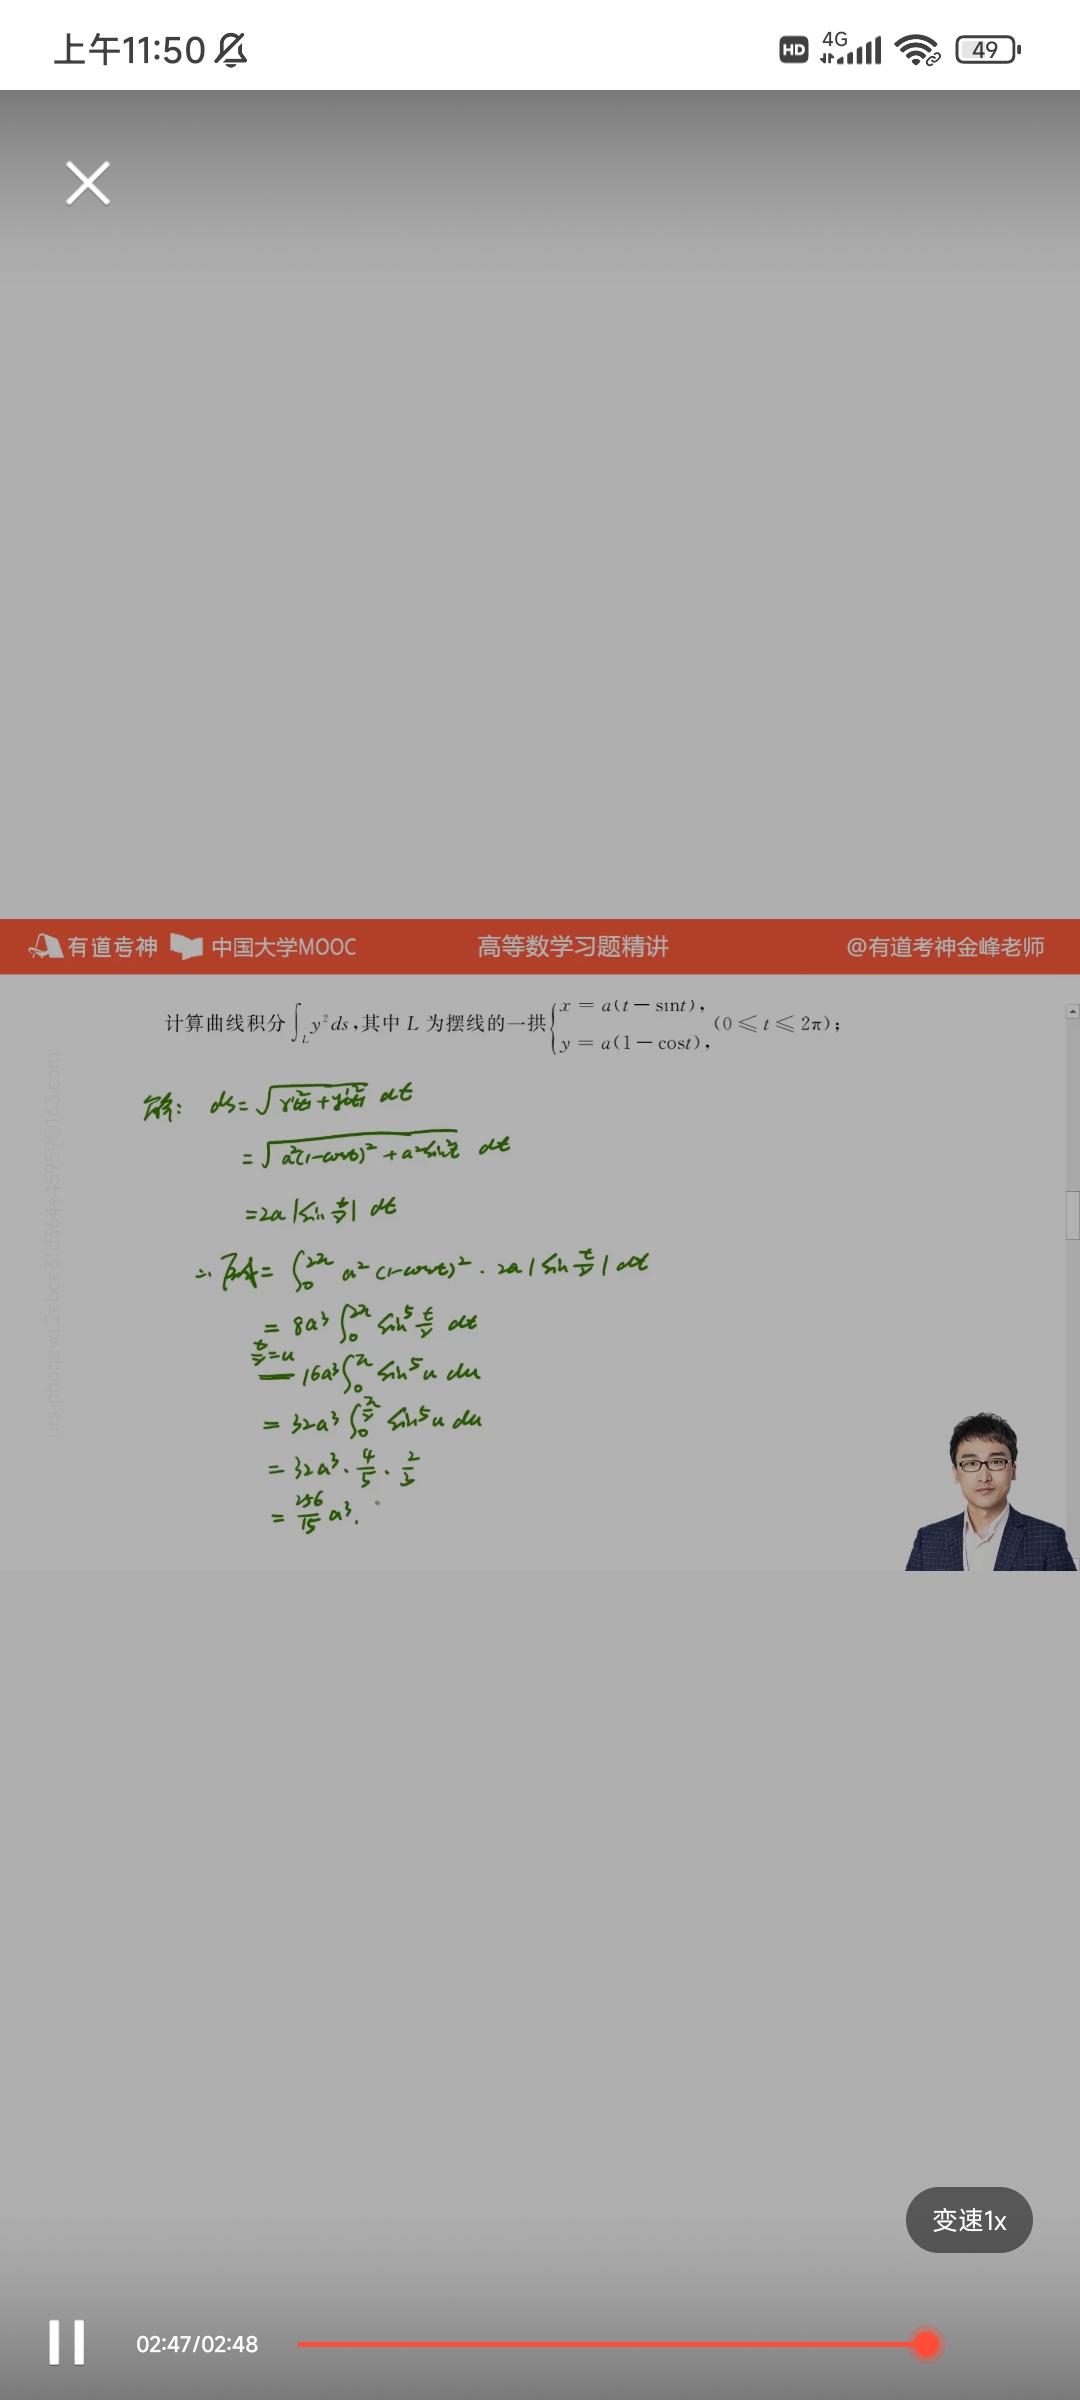 上午11:50 HD 4G 49
有道考神 中国大学MOOC 高等数学习题精讲 @有道考神金峰老师
计算曲线积分∫_L y²ds,其中 L 为摆线的一拱{x = a(t − sint), y = a(1 − cost), (0 ≤ t ≤ 2π);
解: ds = √(x'²(t) + y'²(t)) dt
= √(a²(1−cost)² + a²sin²t) dt
= 2a |sin t/2| dt
∴ 原式 = ∫₀^2π a²(1−cost)² · 2a |sin t/2| dt
= 8a³ ∫₀^2π sin⁵ t/2 dt
t/2=u = 16a³ ∫₀^π sin⁵u du
= 32a³ ∫₀^π/2 sin⁵u du
= 32a³ · 4/5 · 2/3
= 256/15 a³.
变速1x
02:47/02:48